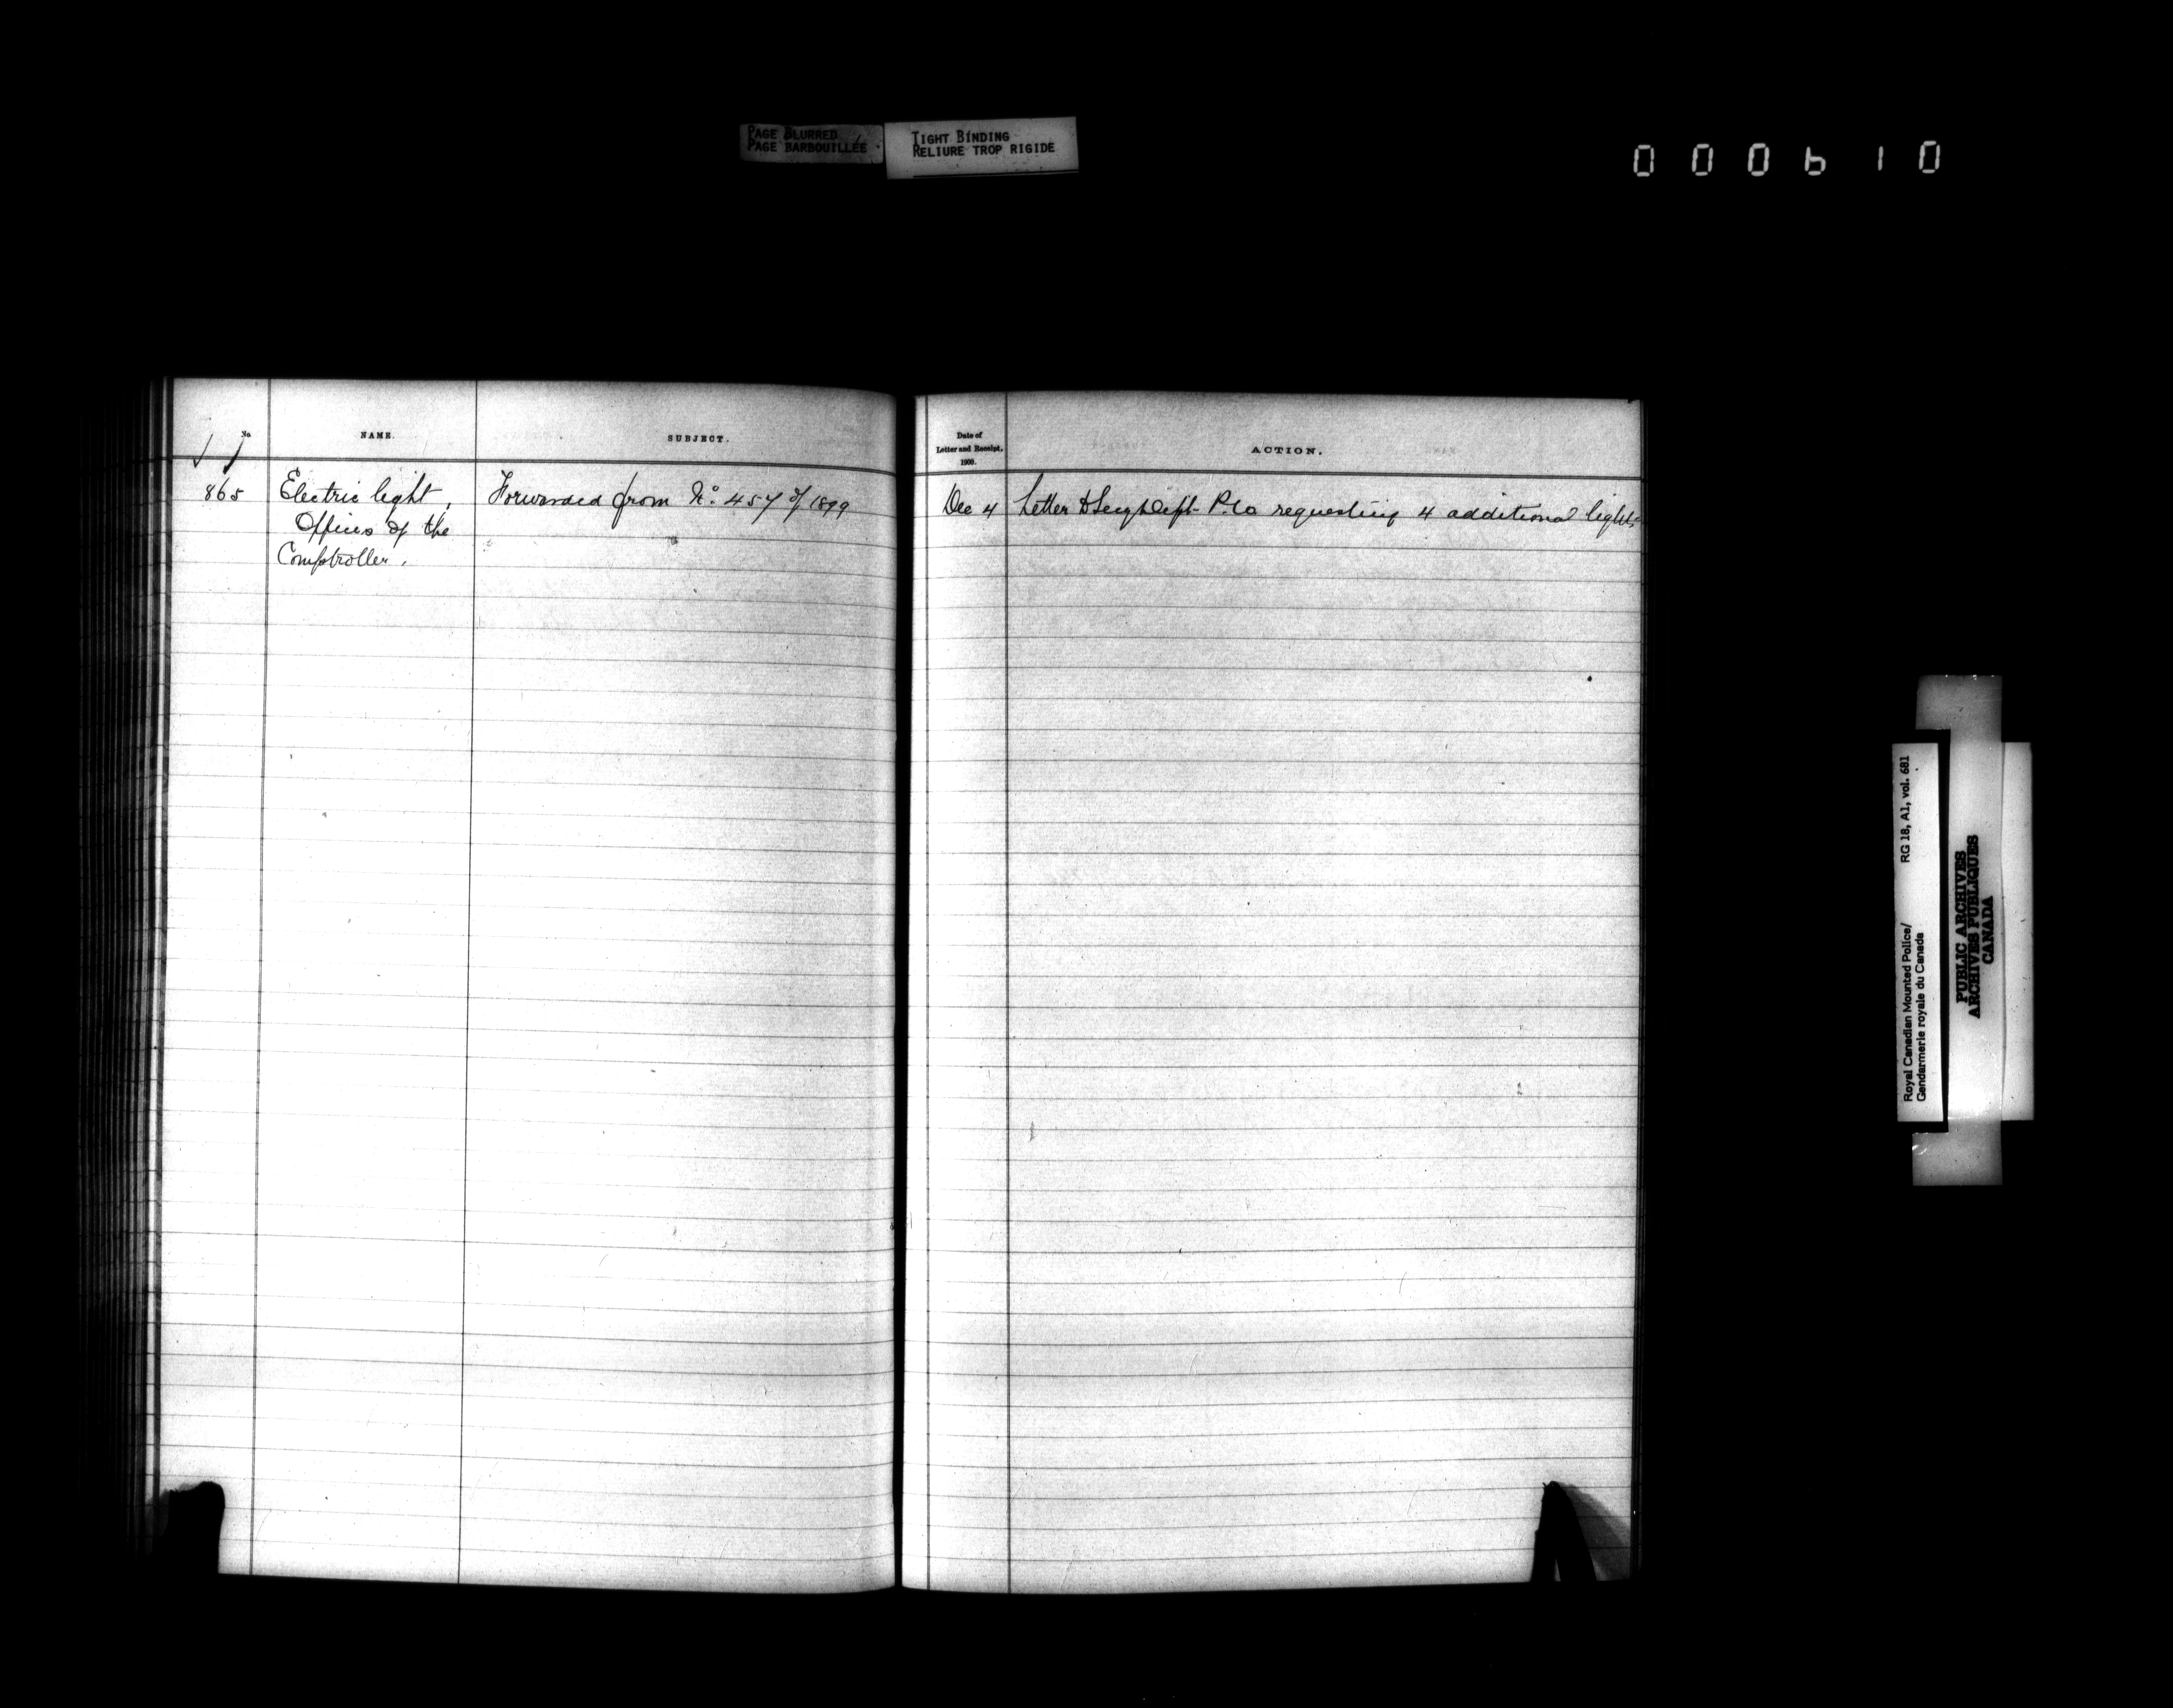 PAGE BLURRED
PAGE BARBOUILLÉE
TIGHT BINDING
RELIURE TROP RIGIDE
000610
No.
NAME.
SUBJECT.
Date of
Letter and Receipt,
1900.
ACTION.
865
Electric light,
Offices of the
Comptroller.
Forwarded from No. 457 of 1899
Dec 4
Letter to Secy Dept. P.W. requesting 4 additional lights
Royal Canadian Mounted Police/
Gendarmerie royale du Canada
RG 18, A1, vol. 681
PUBLIC ARCHIVES
ARCHIVES PUBLIQUES
CANADA